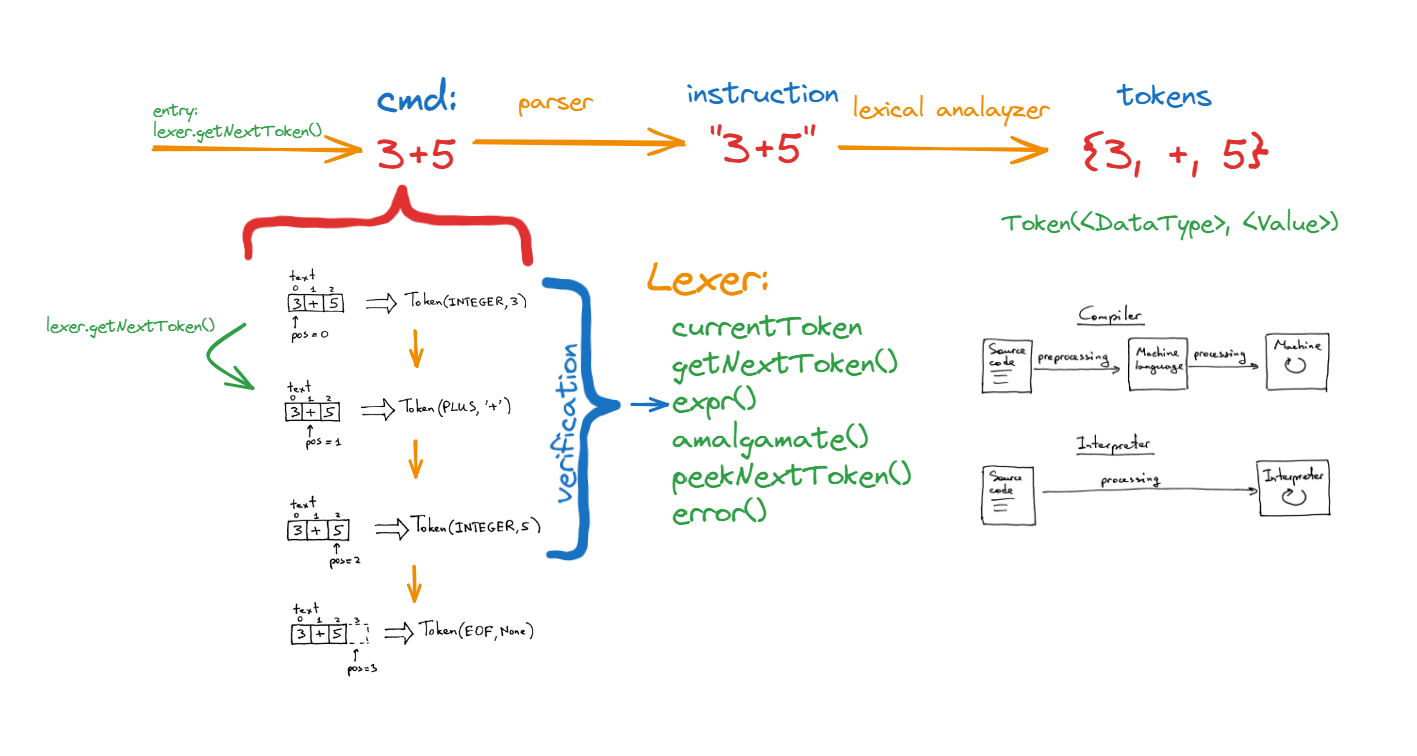 entry:
lexer.getNextToken()
cmd:
3+5
parser
instruction
"3+5"
lexical analayzer
tokens
{3, +, 5}
Token(<DataType>, <Value>)
text
0 1 2
3 + 5
pos=0
Token(INTEGER,3)
lexer.getNextToken()
text
0 1 2
3 + 5
pos=1
Token(PLUS,'+')
text
0 1 2
3 + 5
pos=2
Token(INTEGER,5)
text
0 1 2 3
3 + 5
pos=3
Token(EOF,None)
verification
Lexer:
currentToken
getNextToken()
expr()
amalgamate()
peekNextToken()
error()
Compiler
Source
code
preprocessing
Machine
language
processing
Machine
Interpreter
Source
code
processing
Interpreter